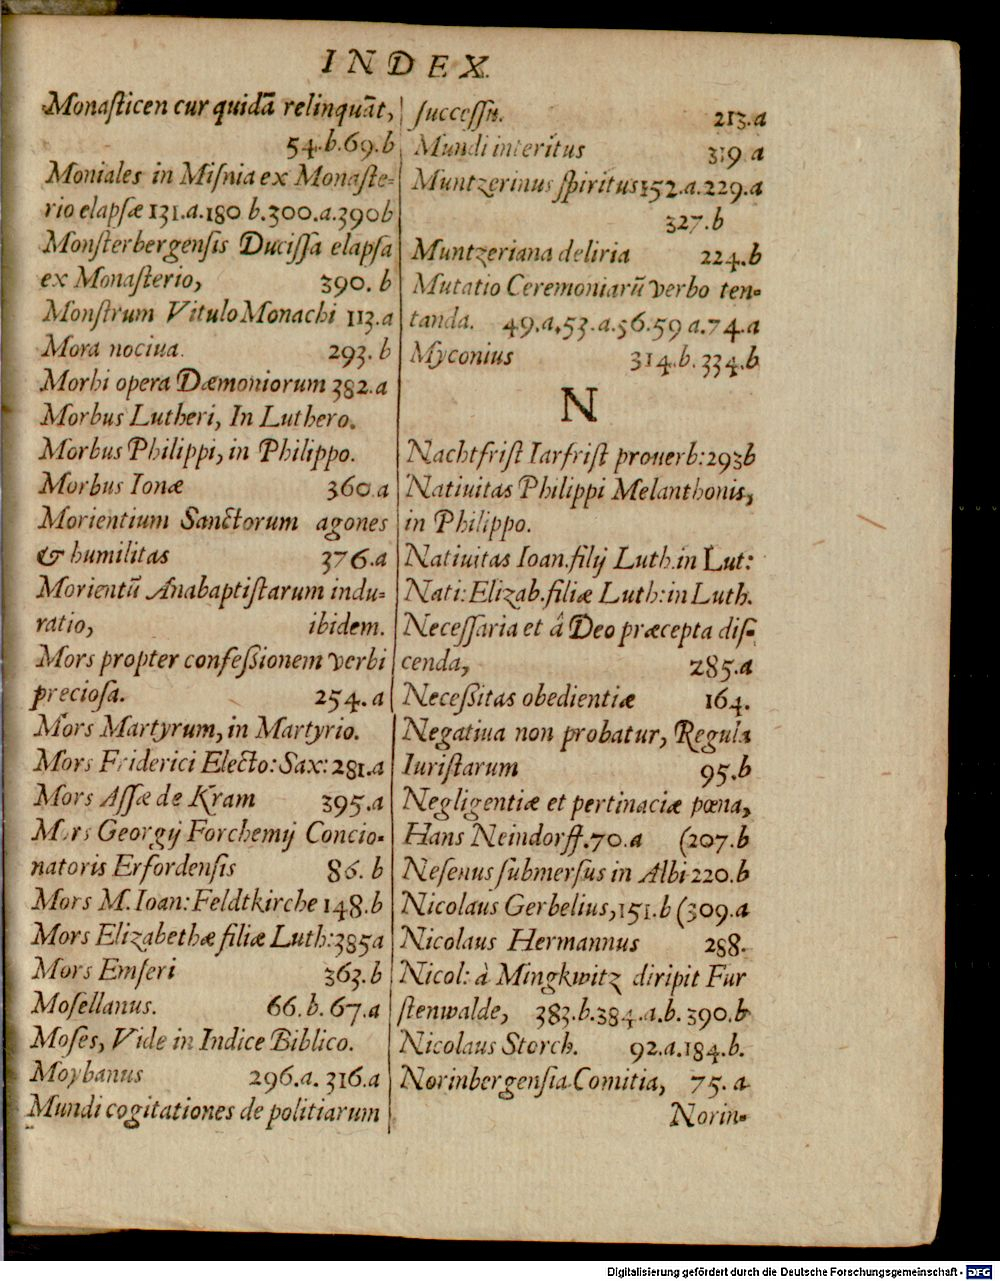 INDEX.
Monaſticen cur quidā relinquāt,
54.b.69.b
Moniales in Miſnia ex Monaſte-
rio elapſæ 131.a.180 b.300.a.390b
Monſterbergenſis Duciſſa elapſa
ex Monaſterio, 390. b
Monſtrum Vitulo Monachi 113.a
Mora nociua. 293. b
Morbi opera Dæmoniorum 382.a
Morbus Lutheri, In Luthero.
Morbus Philippi, in Philippo.
Morbus Ionæ 360.a
Morientium Sanctorum agones
& humilitas 376.a
Morientū Anabaptiſtarum indu-
ratio, ibidem.
Mors propter confeſſionem verbi
precioſa. 254. a
Mors Martyrum, in Martyrio.
Mors Friderici Electo: Sax: 281.a
Mors Aſſæ de Kram 395.a
Mors Georgij Forchemij Concio-
natoris Erfordenſis 86. b
Mors M. Ioan: Feldtkirche 148.b
Mors Elizabethæ filiæ Luth: 385a
Mors Emſeri 363. b
Moſellanus. 66. b. 67.a
Moſes, Vide in Indice Biblico.
Moybanus 296.a. 316.a
Mundi cogitationes de politiarum
ſucceſſu. 213.a
Mundi interitus 319 a
Muntzerinus ſpiritus 152.a.229.a
327.b
Muntzeriana deliria 224.b
Mutatio Ceremoniarū verbo ten-
tanda. 49.a,53.a.56.59 a.74.a
Myconius 314.b. 334.b
N
Nachtfriſt Iarfriſt prouerb: 293b
Natiuitas Philippi Melanthonis,
in Philippo.
Natiuitas Ioan. filij Luth. in Lut:
Nati: Elizab. filiæ Luth: in Luth.
Neceſſaria et â Deo præcepta diſ-
cenda, 285.a
Neceſſitas obedientiæ 164.
Negatiua non probatur, Regula
Iuriſtarum 95.b
Negligentiæ et pertinaciæ pœna,
Hans Neindorff. 70.a (207.b
Neſenus ſubmerſus in Albi 220.b
Nicolaus Gerbelius, 151.b (309.a
Nicolaus Hermannus 288.
Nicol: à Mingkwitz diripit Fur
ſtenwalde, 383.b.384.a.b.390.b
Nicolaus Storch. 92.a.184.b.
Norinbergenſia Comitia, 75. a
Norin-
Digitalisierung gefördert durch die Deutsche Forschungsgemeinschaft - DFG